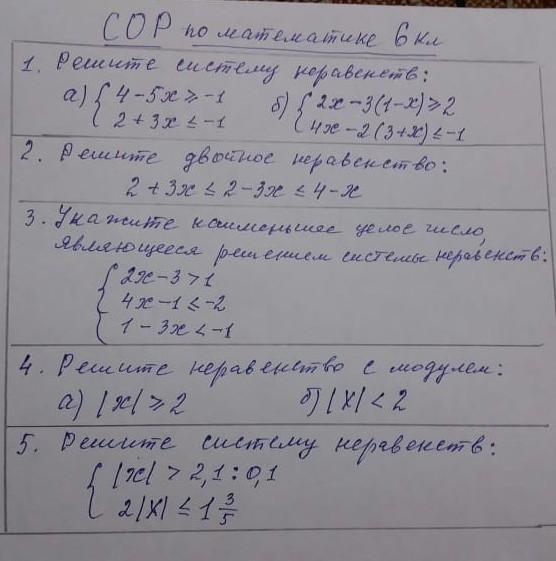 СОР по математике 6 кл
1. Решите систему неравенств:
а) { 4-5x ≥ -1 б) { 2x-3(1-x) ≥ 2
2+3x ≤ -1 4x-2(3+x) ≤ -1
2. Решите двойное неравенство:
2+3x ≤ 2-3x ≤ 4-x
3. Укажите наименьшее целое число,
являющееся решением системы неравенств:
{ 2x-3 > 1
4x-1 ≤ -2
1-3x < -1
4. Решите неравенство с модулем:
а) |x| ≥ 2 б) |x| < 2
5. Решите систему неравенств:
{ |x| > 2,1 : 0,1
2|x| ≤ 1 3/5